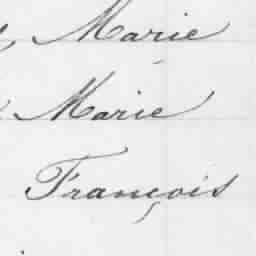 Marie
Marie
François